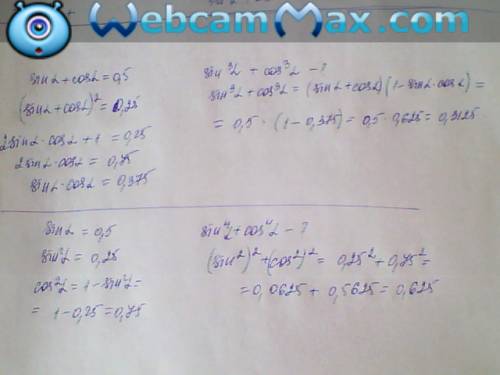 WebcamMax.com
sinα + cosα = 0,5
(sinα + cosα)² = 0,25
2sinα·cosα + 1 = 0,25
2sinα·cosα = 0,75
sinα·cosα = 0,375
sin³α + cos³α - ?
sin³α + cos³α = (sinα + cosα)(1 - sinα·cosα) =
= 0,5 · (1 - 0,375) = 0,5 · 0,625 = 0,3125
sinα = 0,5
sin²α = 0,25
cos²α = 1 - sin²α =
= 1 - 0,25 = 0,75
sin⁴α + cos⁴α - ?
(sin²)² + (cos²)² = 0,25² + 0,75² =
= 0,0625 + 0,5625 = 0,625